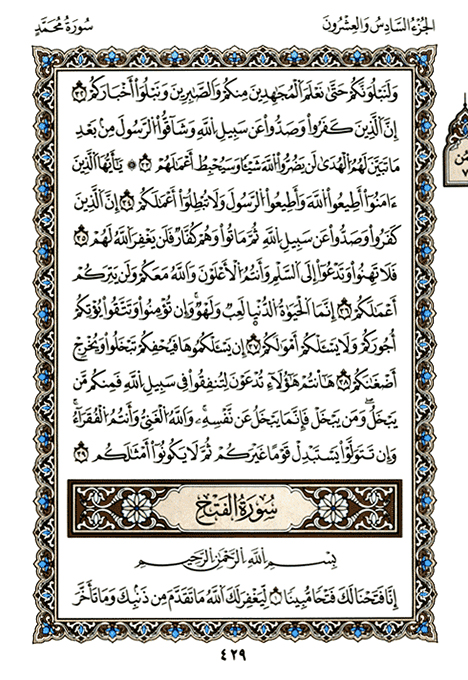 الجُزْءُ السَّادِسُ وَالعِشْرُونَ
سُورَةُ مُحَمَّدٍ
وَلَنَبْلُوَنَّكُمْ حَتَّىٰ نَعْلَمَ ٱلْمُجَٰهِدِينَ مِنكُمْ وَٱلصَّٰبِرِينَ وَنَبْلُوَا۟ أَخْبَارَكُمْ ٣٢
إِنَّ ٱلَّذِينَ كَفَرُوا۟ وَصَدُّوا۟ عَن سَبِيلِ ٱللَّهِ وَشَآقُّوا۟ ٱلرَّسُولَ مِنۢ بَعْدِ
مَا تَبَيَّنَ لَهُمُ ٱلْهُدَىٰ لَن يَضُرُّوا۟ ٱللَّهَ شَيْـًٔا وَسَيُحْبِطُ أَعْمَٰلَهُمْ ٣٣ ۞ يَٰٓأَيُّهَا ٱلَّذِينَ
ءَامَنُوٓا۟ أَطِيعُوا۟ ٱللَّهَ وَأَطِيعُوا۟ ٱلرَّسُولَ وَلَا تُبْطِلُوٓا۟ أَعْمَٰلَكُمْ ٣٤ إِنَّ ٱلَّذِينَ
كَفَرُوا۟ وَصَدُّوا۟ عَن سَبِيلِ ٱللَّهِ ثُمَّ مَاتُوا۟ وَهُمْ كُفَّارٌ فَلَن يَغْفِرَ ٱللَّهُ لَهُمْ ٣٥
فَلَا تَهِنُوا۟ وَتَدْعُوٓا۟ إِلَى ٱلسَّلْمِ وَأَنتُمُ ٱلْأَعْلَوْنَ وَٱللَّهُ مَعَكُمْ وَلَن يَتِرَكُمْ
أَعْمَٰلَكُمْ ٣٦ إِنَّمَا ٱلْحَيَوٰةُ ٱلدُّنْيَا لَعِبٌ وَلَهْوٌ وَإِن تُؤْمِنُوا۟ وَتَتَّقُوا۟ يُؤْتِكُمْ
أُجُورَكُمْ وَلَا يَسْـَٔلْكُمْ أَمْوَٰلَكُمْ ٣٧ إِن يَسْـَٔلْكُمُوهَا فَيُحْفِكُمْ تَبْخَلُوا۟ وَيُخْرِجْ
أَضْغَٰنَكُمْ ٣٨ هَٰٓأَنتُمْ هَٰٓؤُلَآءِ تُدْعَوْنَ لِتُنفِقُوا۟ فِى سَبِيلِ ٱللَّهِ فَمِنكُم مَّن
يَبْخَلُ وَمَن يَبْخَلْ فَإِنَّمَا يَبْخَلُ عَن نَّفْسِهِۦ وَٱللَّهُ ٱلْغَنِىُّ وَأَنتُمُ ٱلْفُقَرَآءُ
وَإِن تَتَوَلَّوْا۟ يَسْتَبْدِلْ قَوْمًا غَيْرَكُمْ ثُمَّ لَا يَكُونُوٓا۟ أَمْثَٰلَكُم ٣٩
سُورَةُ الفَتْحِ
بِسْمِ ٱللَّهِ ٱلرَّحْمَٰنِ ٱلرَّحِيمِ
إِنَّا فَتَحْنَا لَكَ فَتْحًا مُّبِينًا ١ لِّيَغْفِرَ لَكَ ٱللَّهُ مَا تَقَدَّمَ مِن ذَنۢبِكَ وَمَا تَأَخَّرَ
٤٢٩